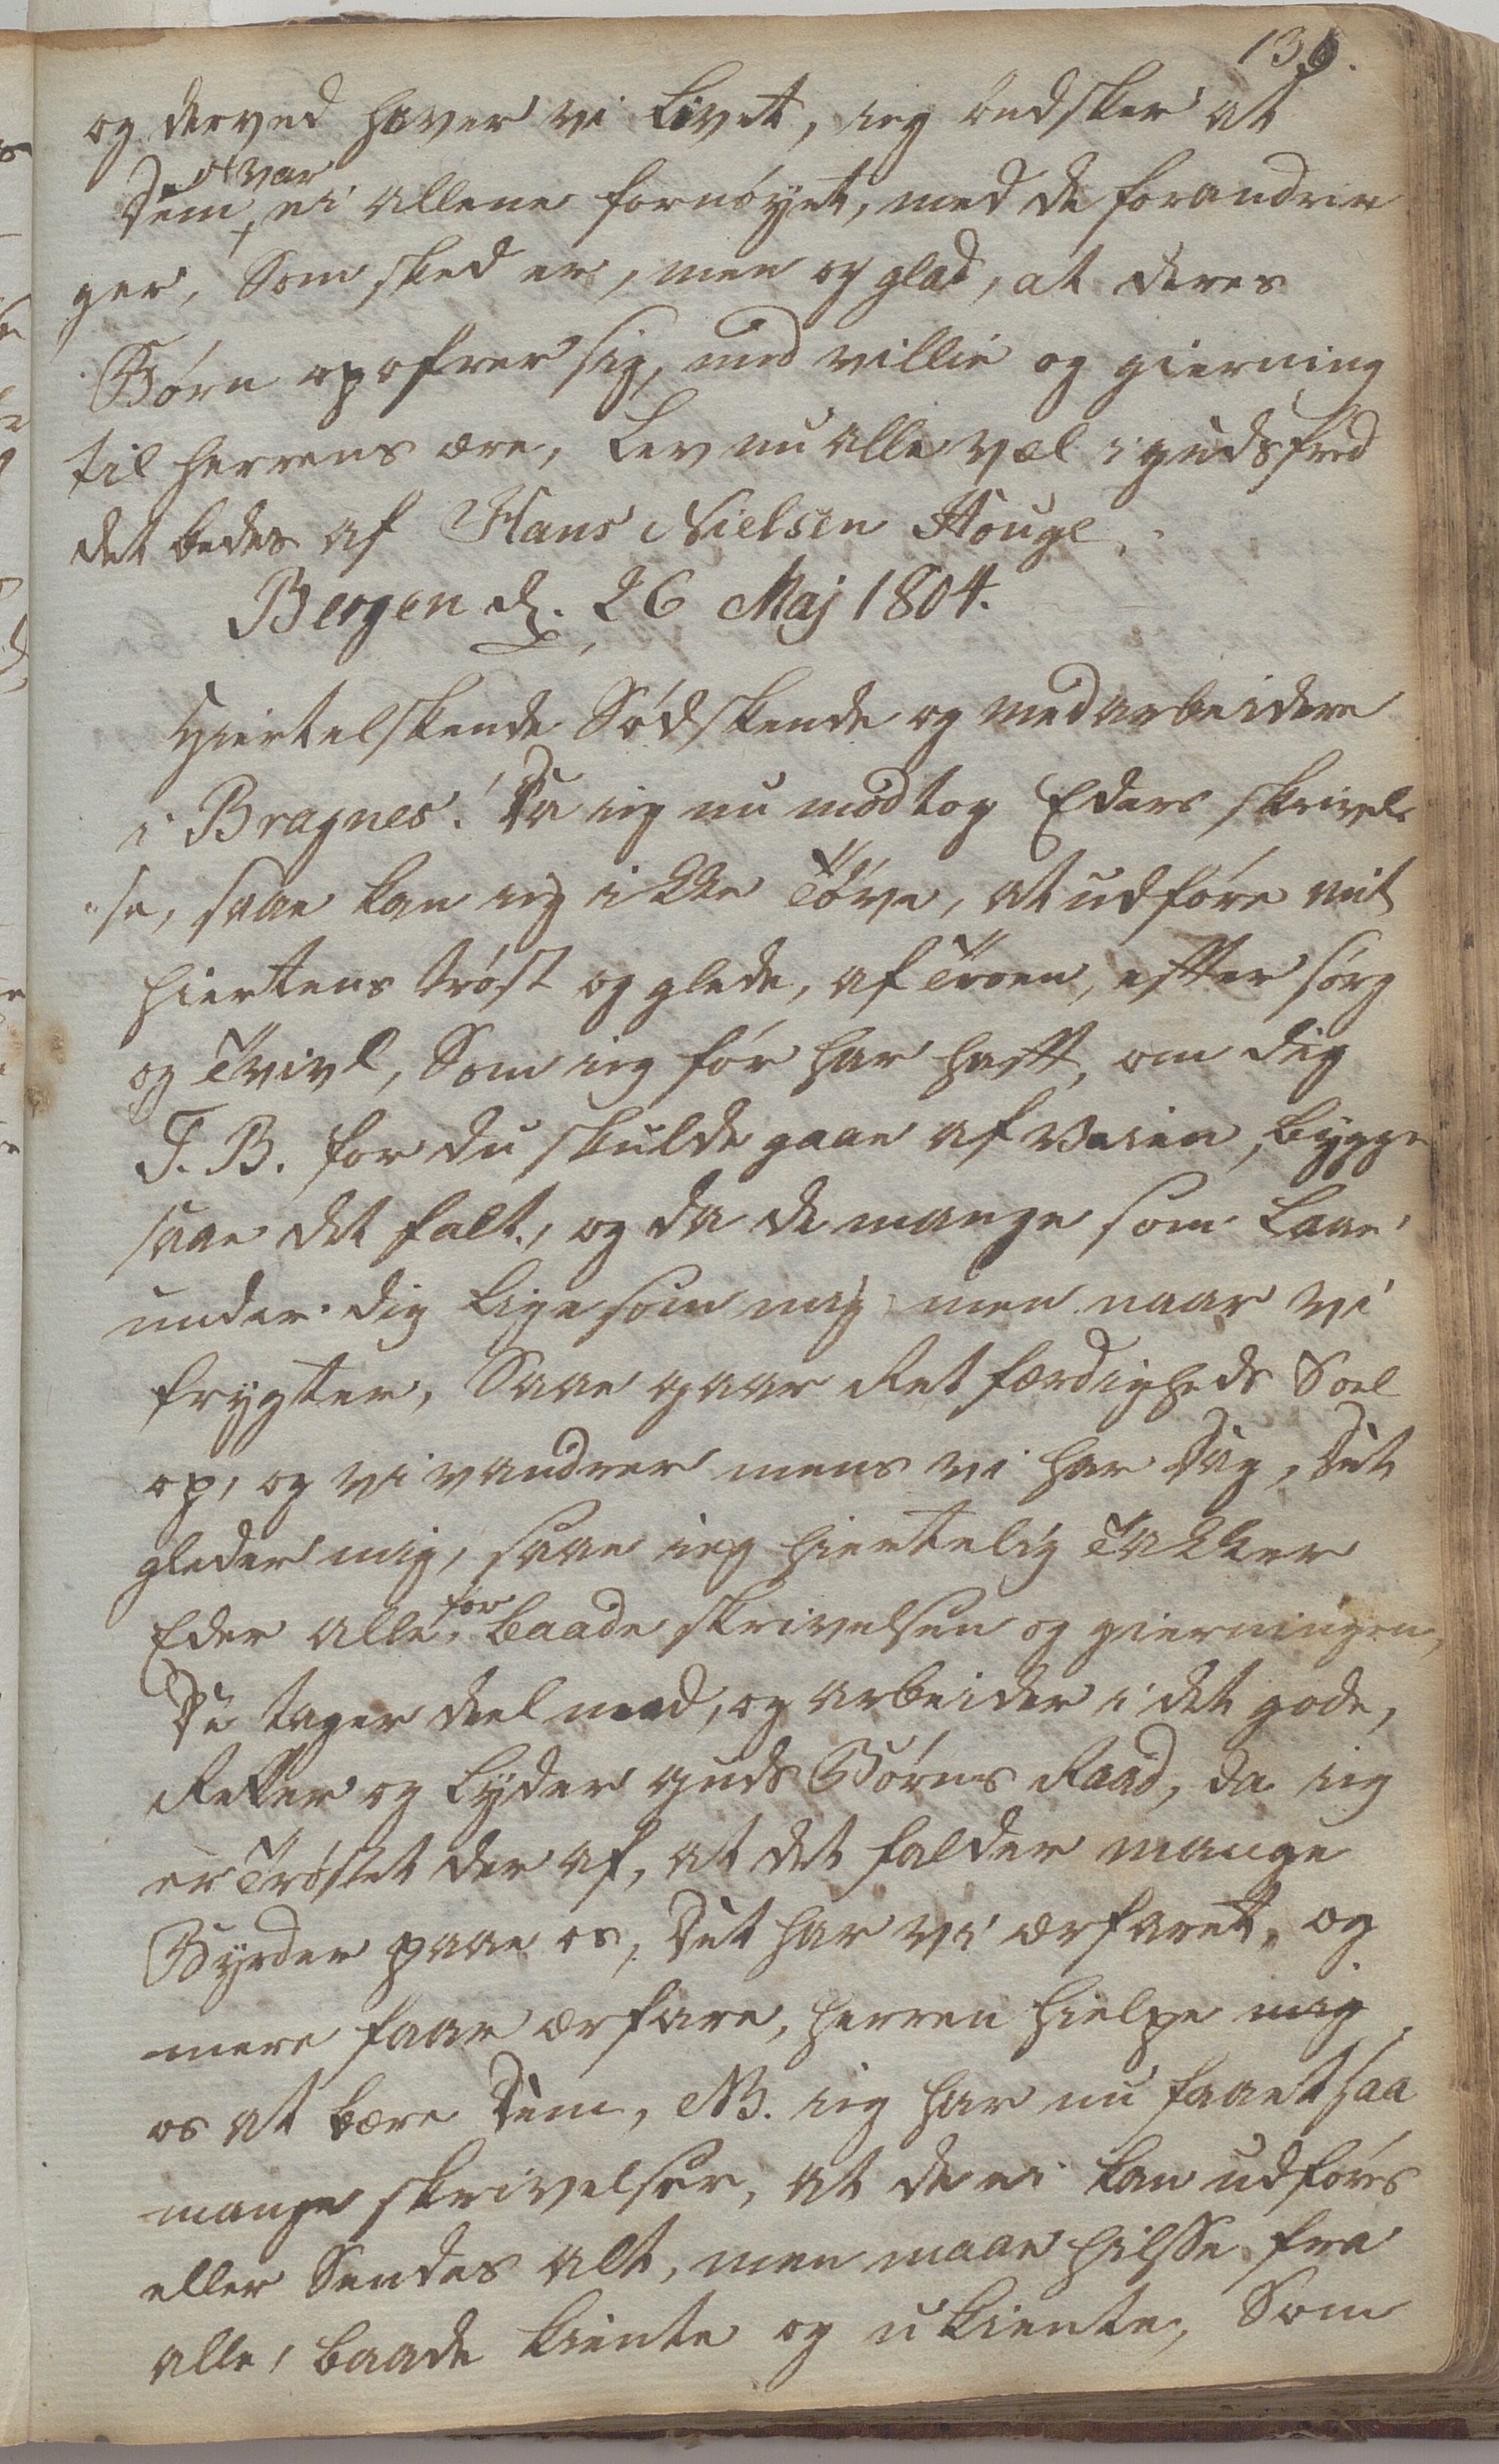 139.
og derved haver vi Livet, ieg ÿndsker at
Dem, var ei allene fornöyet, med de forandrin
ger, Som sked er, men og glad, at deres
Börn opofrer sig, med villie og gierning
til herrens ære, Lev nu alle vel i guds fred
det bedes af Hans Nielsen Houge.
Bergen d. 26 Maj 1804.
Hiertelskende Södskende og medarbeidere
i Bragnes! Da ieg nu modtog Eders skrivel
se, saa kan ieg ikke Töve, at udföre mit
hiertens tröst og glede, af Troen, efter sorg
og Tvivl, Som ieg för har haft, om dig
T. B. for du skulde gaae af veien, bygge
saae det falt, og da de mange som Laae
under dig lige som mig men naar vi
frygter, Saae gaar Retfærdigheds Soel
op, og vi vandrer mens vi har Dag, Det
gleder mig, saae ieg hiertelig Takker
Eder alle, for baade skrivelsen og gierningen,
De tager deel med, og arbeider i det gode,
Retter og lyder guds Börns Raad, da ieg
er Tröstet der af, at det falder mange
Byrder paae os, Det har vi ærfaret, og
mere faar ærfare, herren hielpe mig
os at bære Dem, NB. ieg har nu faaet saa
mange skrivelser, at de ei kan udföres
eller Sendes alt, men maae hilsse fra
alle, baade kiente og ukiente, Som